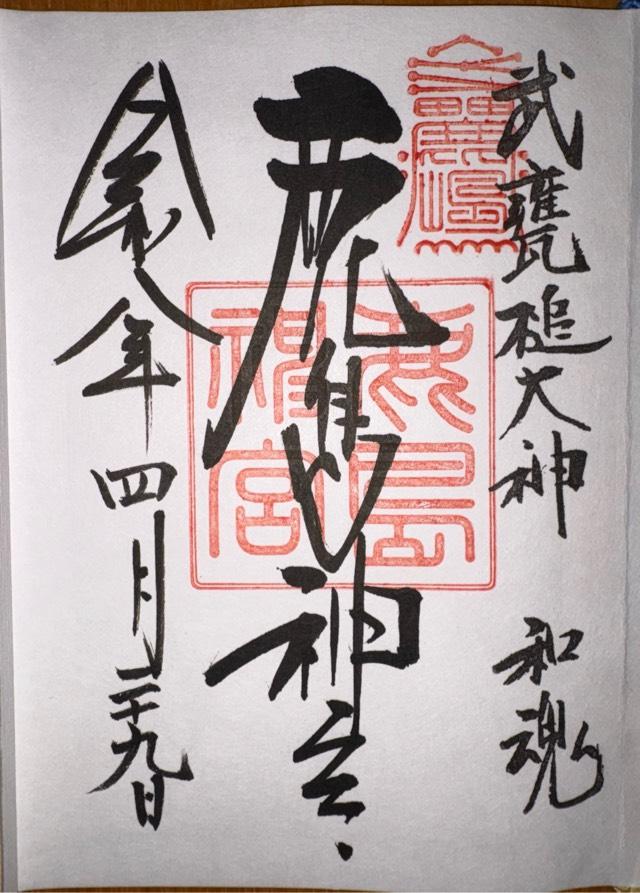 武甕槌大神 和魂
鹿島神宮
鹿島
神宮
令和八年四月二十九日